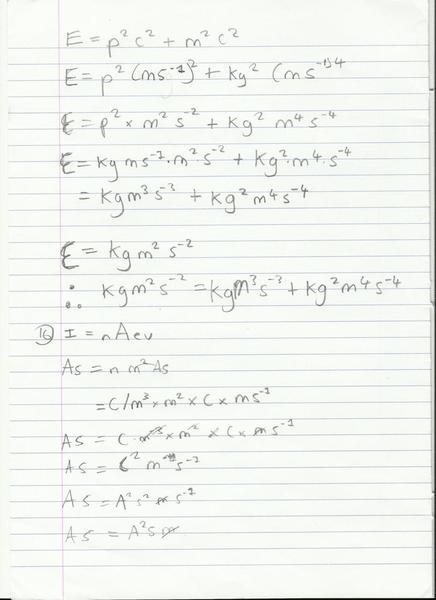 E = p² c² + m² c²
E = p² (ms⁻¹)² + kg² (ms⁻¹)4
E = p² × m² s⁻² + kg² m⁴ s⁻⁴
E = kg ms⁻¹·m² s⁻² + kg²·m⁴·s⁻⁴
= kg m³ s⁻³ + kg² m⁴ s⁻⁴
E = kg m² s⁻²
∴ kg m² s⁻² = kg m³ s⁻³ + kg² m⁴ s⁻⁴
16 I = nAev
As = n m² As
= C/m³ × m² × C × ms⁻¹
As = C · m⁻³ × m² × C × m s⁻¹
As = C² s⁻¹
As = A² s² s⁻¹
As = A² s